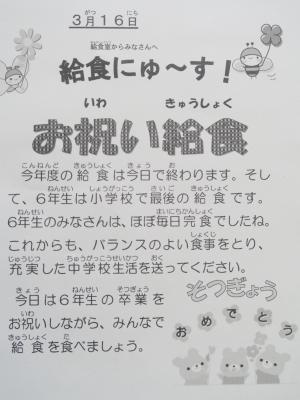 3月16日
給食室からみなさんへ
給食にゅ～す！
お祝い給食
今年度の給食は今日で終わります。そし
て、6年生は小学校で最後の給食です。
6年生のみなさんは、ほぼ毎日完食でしたね。
これからも、バランスのよい食事をとり、
充実した中学校生活を送ってください。
今日は6年生の卒業を
お祝いしながら、みんなで
給食を食べましょう。
そつぎょう
おめでとう